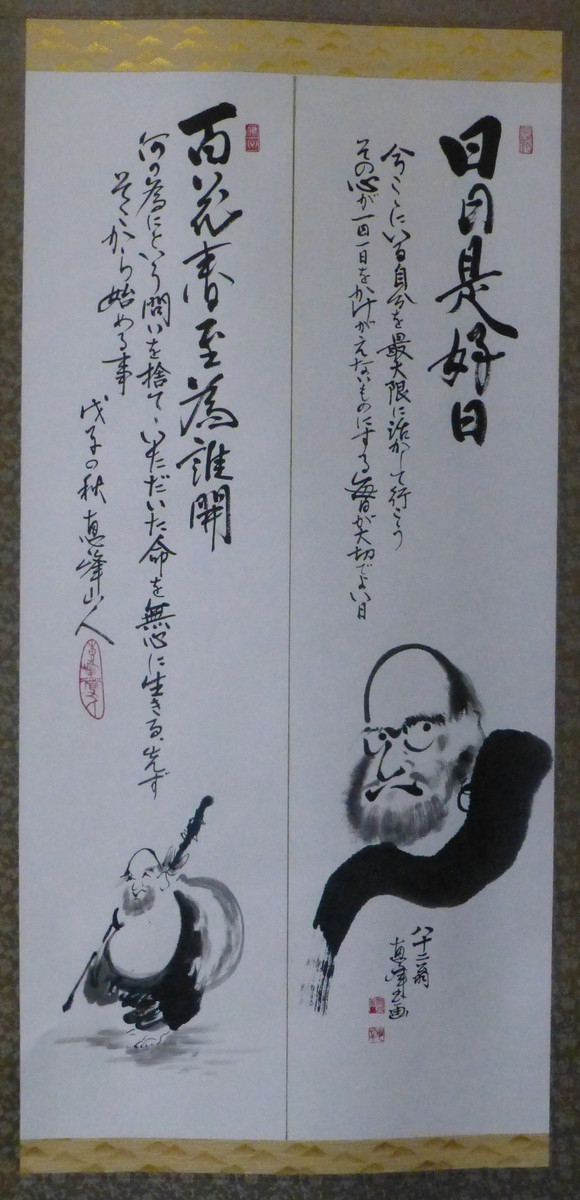 日日是好日
今ここにいる自分を最大限に活かして行こう
その心が一日一日をかけがえないものにする毎日が大切でよい日
八十二翁
恵峰書画
百花春至為誰開
何の為にという問いを捨て、いただいた命を無心に生きる、先ず
そこから始める事
戊子の秋 恵峰山人